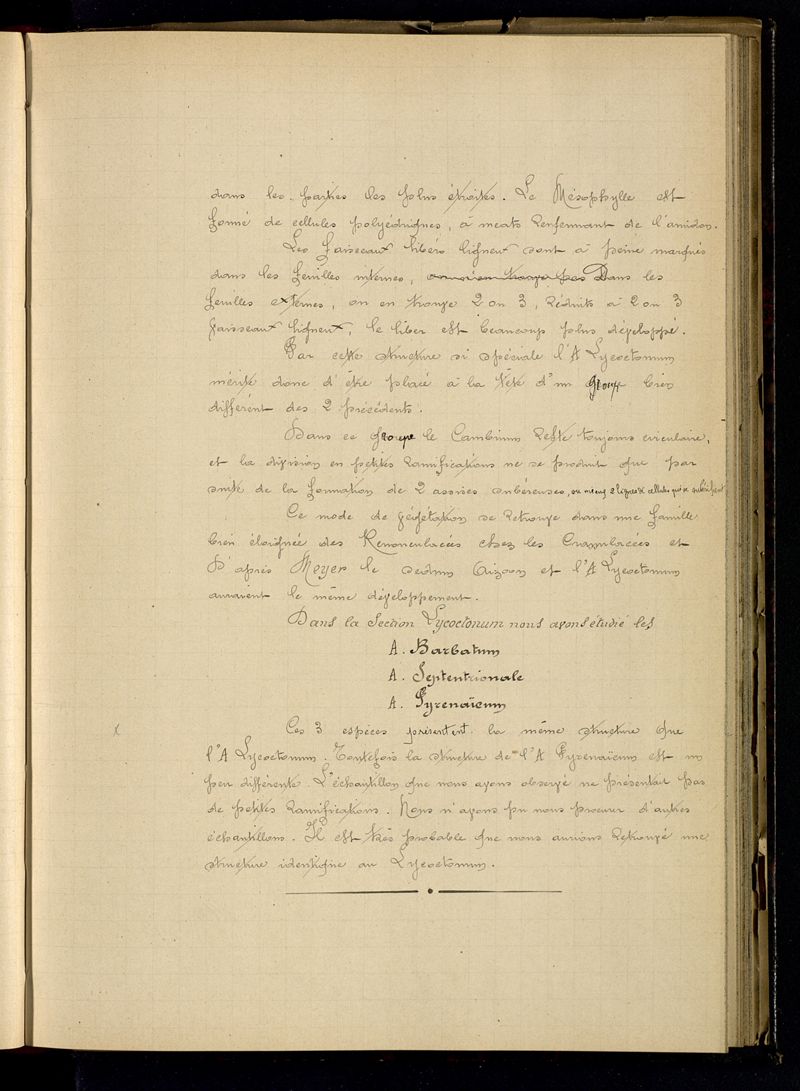 dans les parties les plus étroites. Le Mésophylle est
formé de cellules polyédriques, à meats renfermant de l'amidon.
Les faisceaux libéro ligneux sont à peine marqués
dans les feuilles internes, Dans les
feuilles externes, on en trouve 2 ou 3, réduits à 2 ou 3
vaisseaux ligneux, le liber est beaucoup plus développé.
Par cette structure si spéciale l'A Lycoctonum
mérite donc d'être placé à la tête d'un groupe bien
différent des 2 précédents.
Dans ce groupe le Cambium reste toujours circulaire,
et la division en petites ramifications ne se produit que par
suite de la formation de 2 assises subéreuses, ou mieux 2 lignes de cellules qui se subérifient
Ce mode de végétation se retrouve dans une famille
bien éloignée des Renonculacées chez les Crassulacées et
D'après Meyer le sedum Aizoon et l'A Lycoctonum
auraient le même développement.
Dans la Section Lycoctonum nous avons étudié les
A. Barbatum
A. Septentrionale
A. Pyrenaïcum
Ces 3 espèces présentent la même structure que
l'A Lycoctonum. Toutefois la structure de l'A Pyrenaïcum est un
peu différente. L'échantillon que nous avons observé ne présentait pas
de petites ramifications. Nous n'avons pu nous procurer d'autres
échantillons. Il est très probable que nous aurions retrouvé une
structure identique au Lycoctonum.